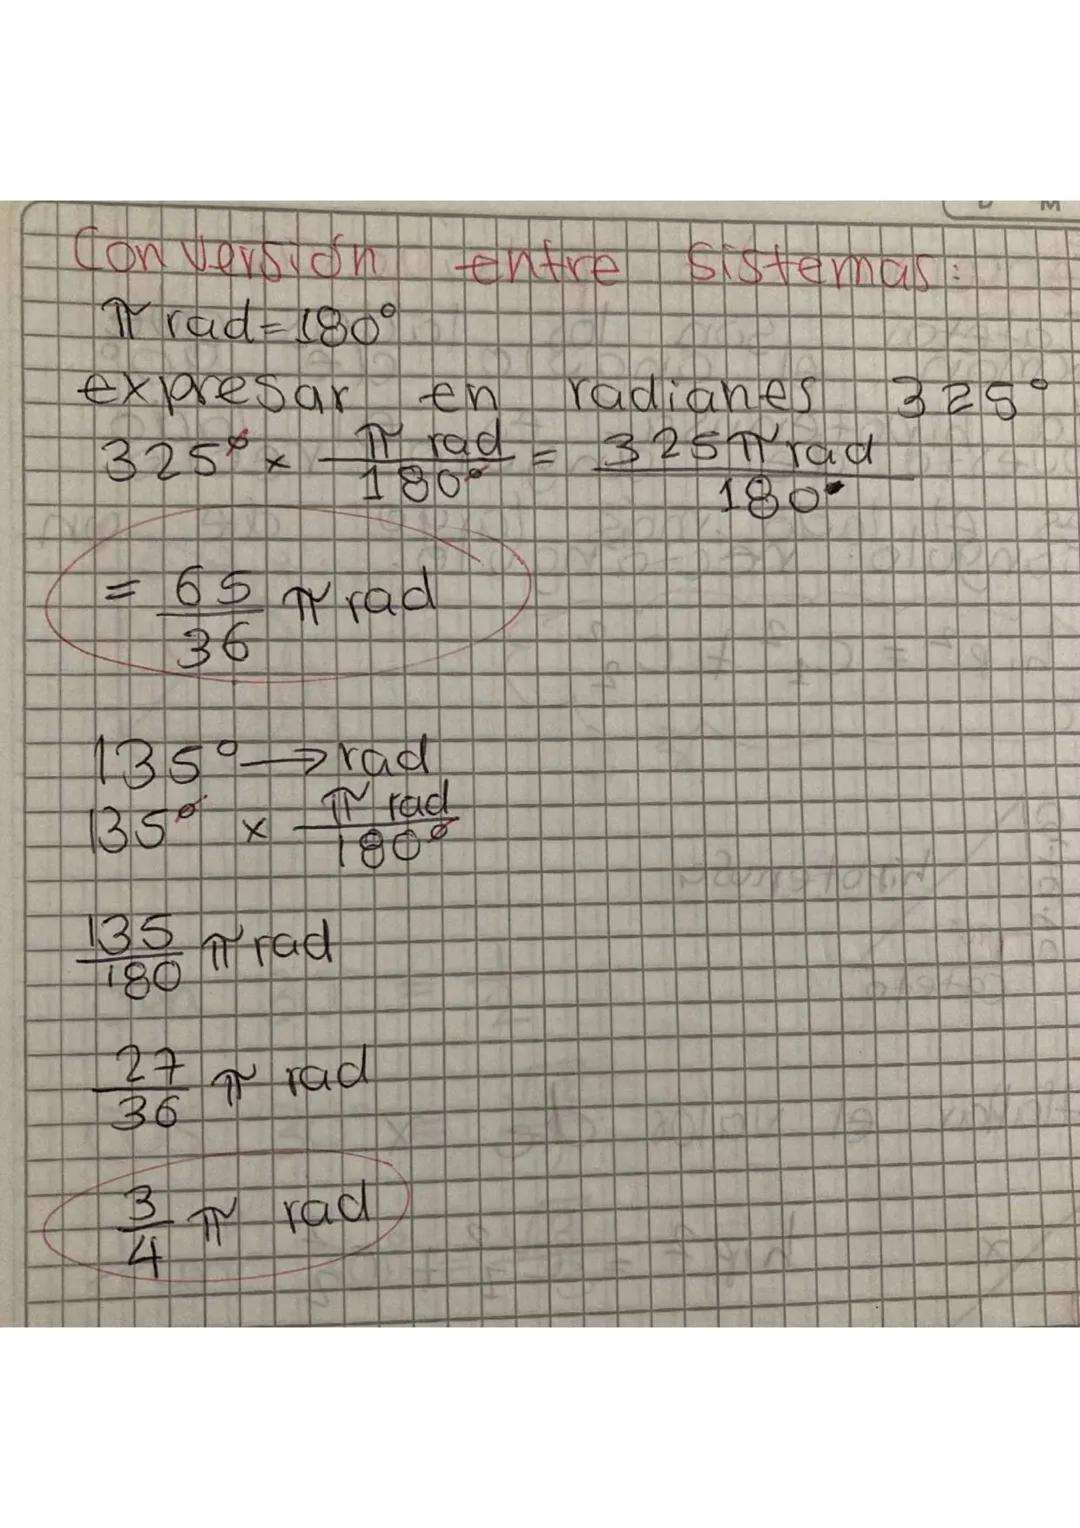 Conversión entre sistemas:
π rad = 180°
expresar en radianes 325°
325° × π rad / 180° = 325 π rad / 180
= 65/36 π rad
135° → rad
135° × π rad / 180°
135/180 π rad
27/36 π rad
3/4 π rad